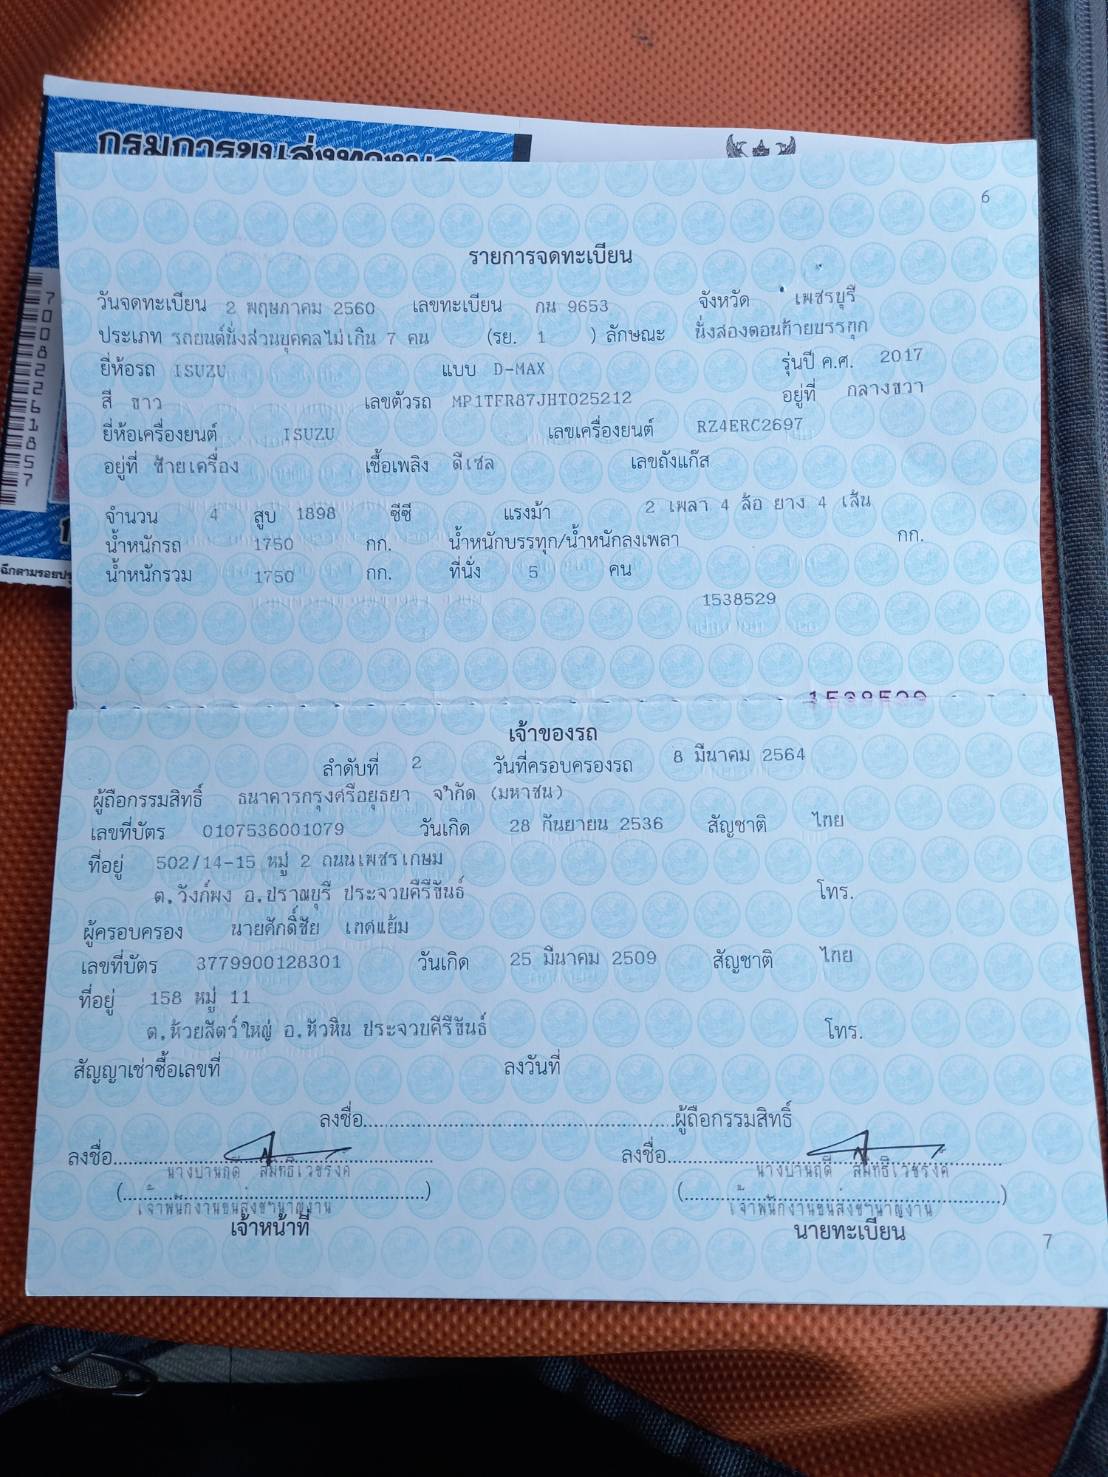 กรมการขนส่งทางบก
6
รายการจดทะเบียน
วันจดทะเบียน 2 พฤษภาคม 2560 เลขทะเบียน กน 9653 จังหวัด เพชรบุรี
ประเภท รถยนต์นั่งส่วนบุคคลไม่เกิน 7 คน (รย. 1 ) ลักษณะ นั่งสองตอนท้ายบรรทุก
ยี่ห้อรถ ISUZU แบบ D-MAX รุ่นปี ค.ศ. 2017
สี ขาว เลขตัวรถ MP1TFR87JHT025212 อยู่ที่ กลางขวา
ยี่ห้อเครื่องยนต์ ISUZU เลขเครื่องยนต์ RZ4ERC2697
อยู่ที่ ซ้ายเครื่อง เชื้อเพลิง ดีเซล เลขถังแก๊ส
จำนวน 4 สูบ 1898 ซีซี แรงม้า 2 เพลา 4 ล้อ ยาง 4 เส้น
น้ำหนักรถ 1750 กก. น้ำหนักบรรทุก/น้ำหนักลงเพลา กก.
น้ำหนักรวม 1750 กก. ที่นั่ง 5 คน
1538529
1538529
เจ้าของรถ
ลำดับที่ 2 วันที่ครอบครองรถ 8 มีนาคม 2564
ผู้ถือกรรมสิทธิ์ ธนาคารกรุงศรีอยุธยา จำกัด (มหาชน)
เลขที่บัตร 0107536001079 วันเกิด 28 กันยายน 2536 สัญชาติ ไทย
ที่อยู่ 502/14-15 หมู่ 2 ถนนเพชรเกษม
ต.วังก์พง อ.ปราณบุรี ประจวบคีรีขันธ์ โทร.
ผู้ครอบครอง นายศักดิ์ชัย เทศแย้ม
เลขที่บัตร 3779900128301 วันเกิด 25 มีนาคม 2509 สัญชาติ ไทย
ที่อยู่ 158 หมู่ 11
ต.ห้วยสัตว์ใหญ่ อ.หัวหิน ประจวบคีรีขันธ์ โทร.
สัญญาเช่าซื้อเลขที่ ลงวันที่
ลงชื่อ ผู้ถือกรรมสิทธิ์
ลงชื่อ ลงชื่อ
เจ้าพนักงานขนส่งชำนาญงาน เจ้าพนักงานขนส่งชำนาญงาน
เจ้าหน้าที่ นายทะเบียน
7